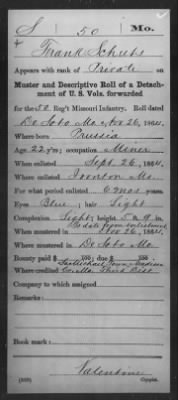 S 50 Mo.
Frank Schubs
Appears with rank of Private on
Muster and Descriptive Roll of a Detach-
ment of U. S. Vols. forwarded
for the 50 Reg't Missouri Infantry. Roll dated
De Soto Mo. Nov 26, 1864.
Where born Prussia
Age 22 y'rs; occupation Miner
When enlisted Sept. 26, 1864.
Where enlisted Ironton Mo.
For what period enlisted 6 mos years.
Eyes Blue; hair Light
Complexion Light; height 5 ft. 9 in.
to date from enlistment
When mustered in Nov 26, 1864.
Where mustered in De Soto Mo
Bounty paid $ 100; due $ 100
St Michael Town Madison
Where credited Co. Mo. Third Dist
Company to which assigned
Remarks:
Book mark:
Valentine
Copyist.